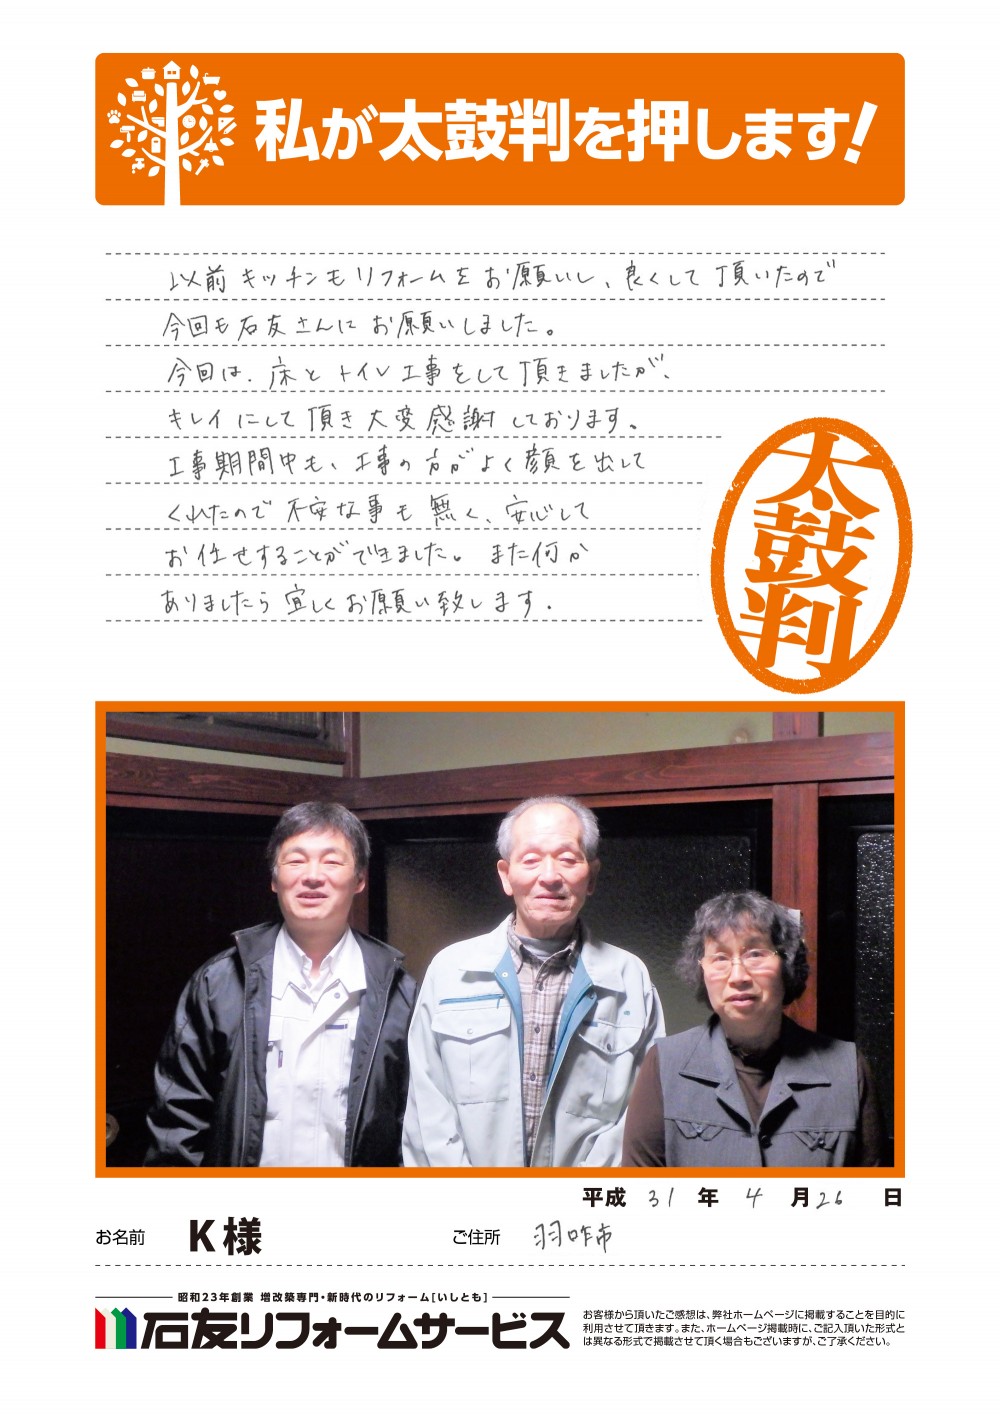 私が太鼓判を押します!
以前キッチンもリフォームをお願いし、良くして頂いたので
今回も石友さんにお願いしました。
今回は、床とトイレ工事をして頂きましたが、
キレイにして頂き大変感謝しております。
工事期間中も、工事の方がよく顔を出して
くれたので不安な事も無く、安心して
お任せすることができました。また何か
ありましたら宜しくお願い致します.
太鼓判
平成31年4月26日
お名前 K様 ご住所 羽咋市
昭和23年創業 増改築専門・新時代のリフォーム[いしとも]
石友リフォームサービス
お客様から頂いたご感想は、弊社ホームページに掲載することを目的に
利用させて頂きます。また、ホームページ掲載時に、ご記入頂いた形式と
は異なる形式で掲載させて頂く場合もございますが、ご了承ください。